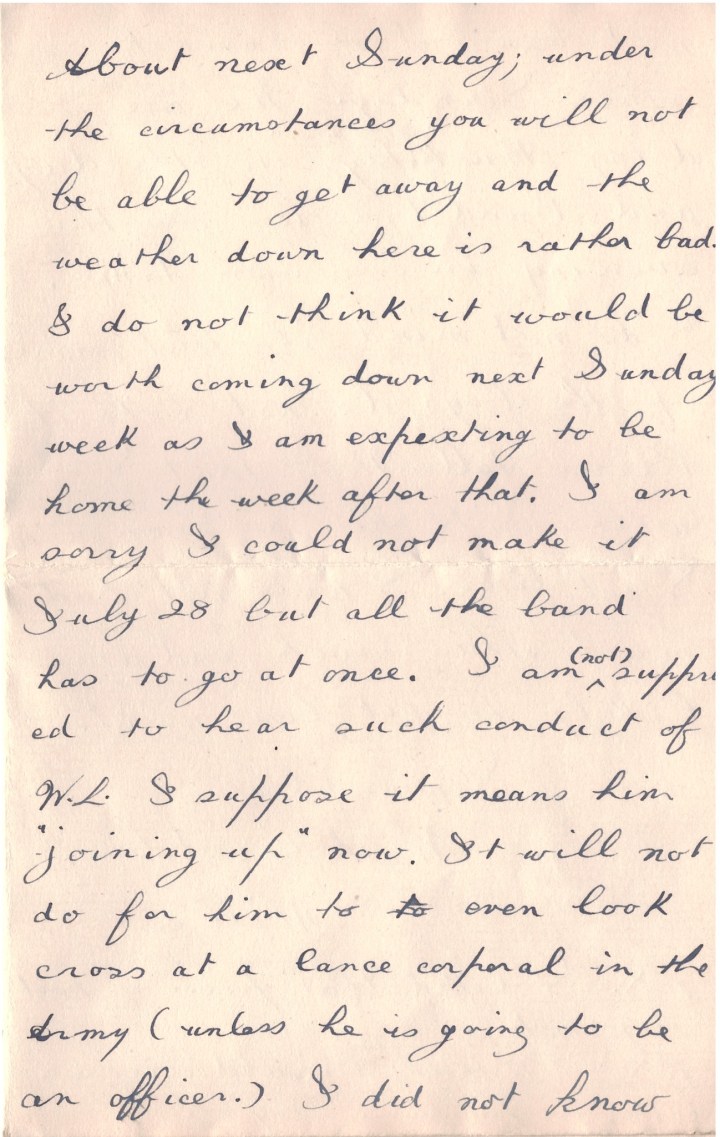 About next Sunday; under
the circumstances you will not
be able to get away and the
weather down here is rather bad.
I do not think it would be
worth coming down next Sunday
week as I am expexting to be
home the week after that. I am
sorry I could not make it
July 28 but all the band
has to go at once. I am (not) suppri
ed to hear such conduct of
W.L. I suppose it means him
"joining up" now. It will not
do for him to to even look
cross at a lance corporal in the
Army (unless he is going to be
an officer.) I did not know